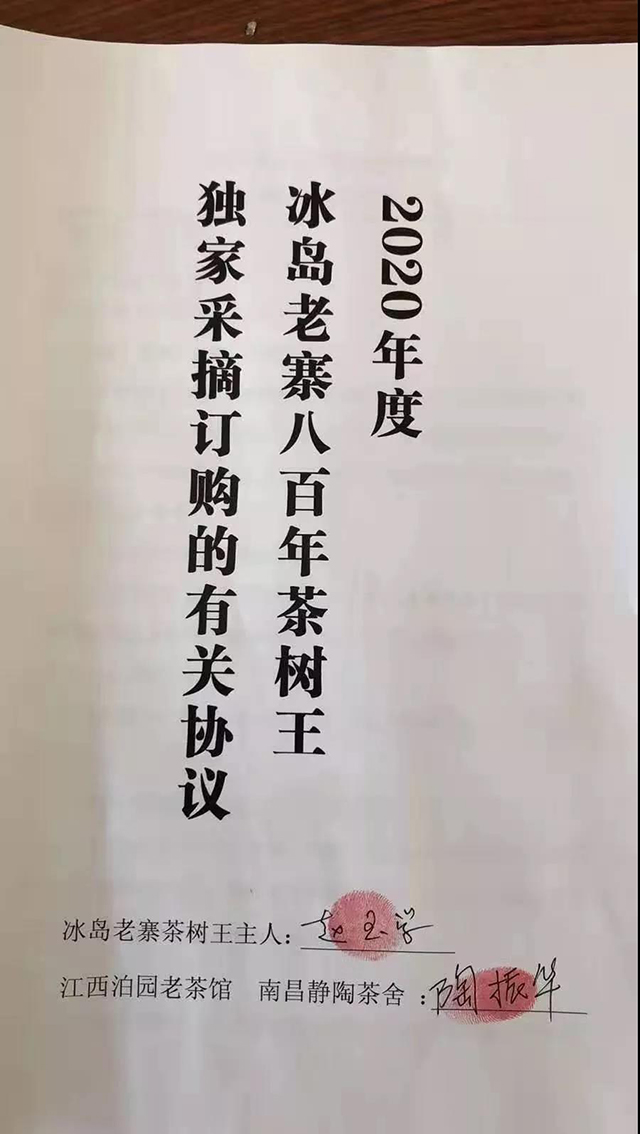 2020年度
冰岛老寨八百年茶树王
独家采摘订购的有关协议
冰岛老寨茶树王主人：赵玉学
江西泊园老茶馆 南昌静陶茶舍：陶振华